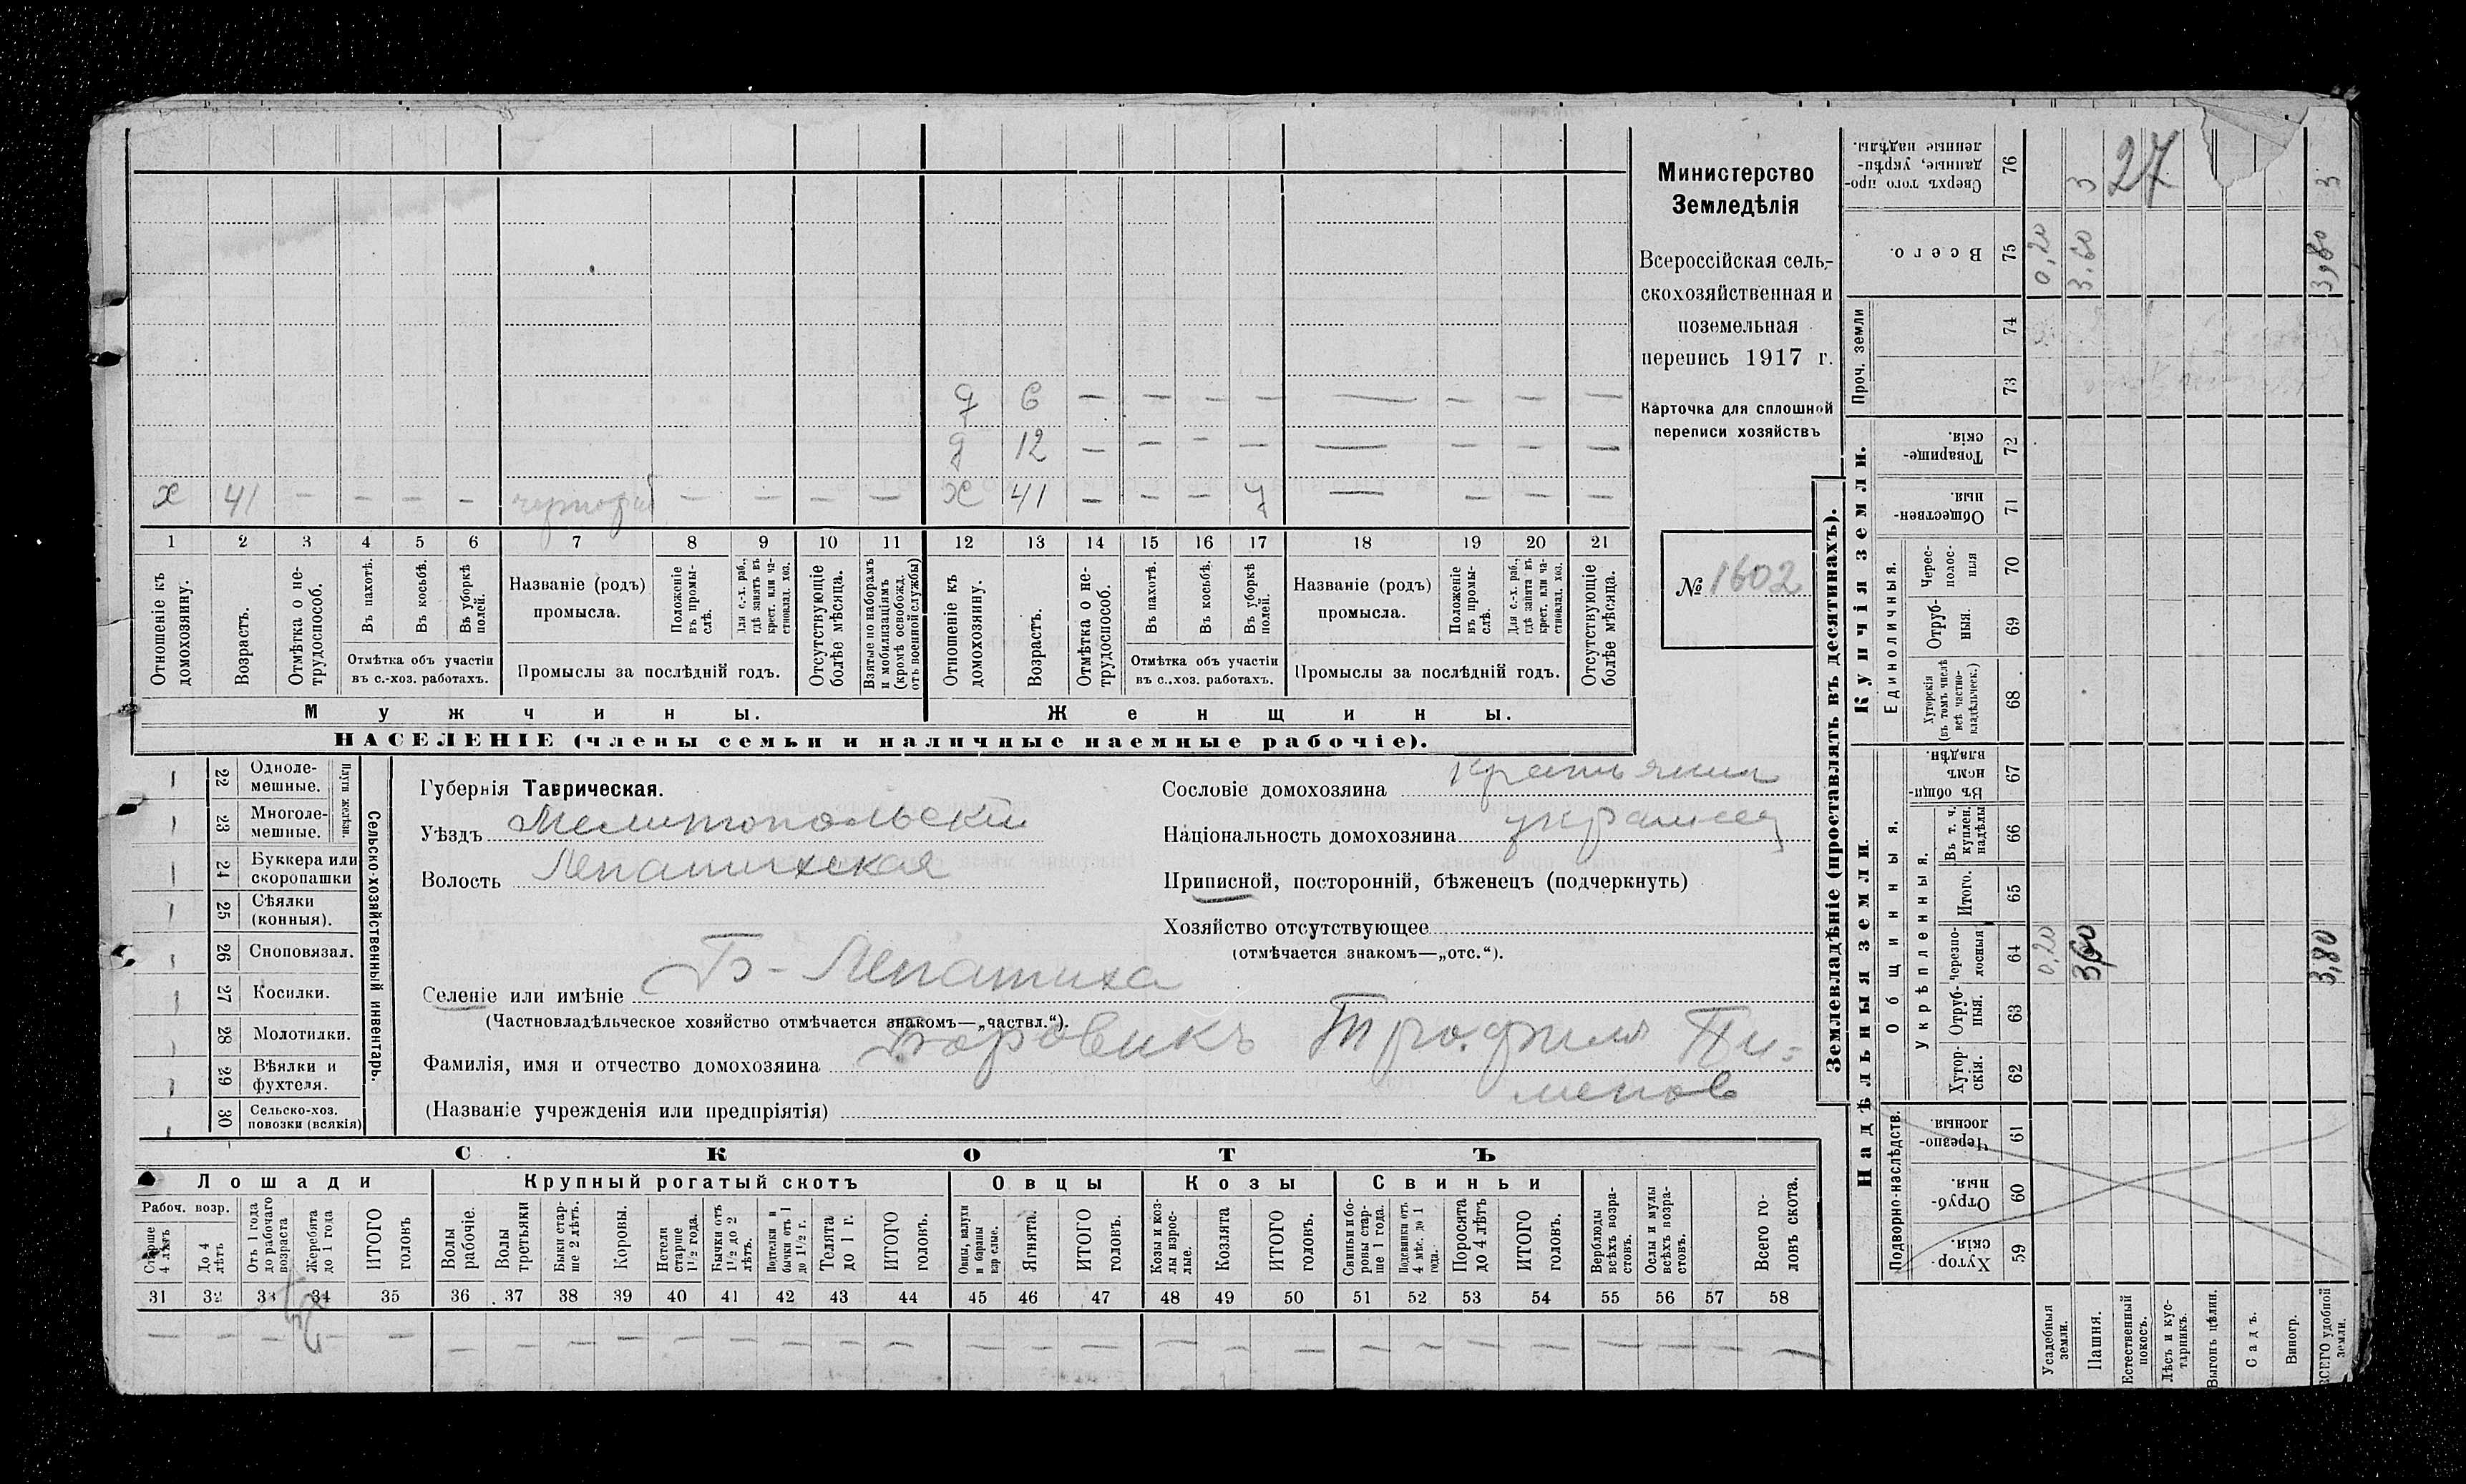 Министерство
Земледѣлія
Всероссійская сель-
скохозяйственная и
поземельная
перепись 1917 г.
Карточка для сплошной
переписи хозяйствъ
№ 1602
д 6 — — — — — — — —
д 12 — — — — — — — —
х 41 — — — — — — — —
х 41 — — — у — — — —
1 2 3 4 5 6 7 8 9 10 11 12 13 14 15 16 17 18 19 20 21
Отношеніе къ домохозяину.
Возрастъ.
Отмѣтка о не-трудоспособ.
Въ пахотѣ.
Въ косьбѣ.
Въ уборкѣ полей.
Отмѣтка объ участіи
въ с.-хоз. работахъ.
Названіе (родъ)
промысла.
Положеніе въ промы-слѣ.
Для с.-х. раб., гдѣ занятъ въ крест. или ча-стновлад. хоз.
Промыслы за послѣдній годъ.
Отсутствующіе болѣе мѣсяца.
Взятые по наборамъ и мобилизаціямъ (кромѣ освобожд. отъ военной службы)
Отношеніе къ домохозяину.
Возрастъ.
Отмѣтка о не-трудоспособ.
Въ пахотѣ.
Въ косьбѣ.
Въ уборкѣ полей.
Отмѣтка объ участіи
въ с..хоз. работахъ.
Названіе (родъ)
промысла.
Положеніе въ промы-слѣ.
Для с.-х. раб., гдѣ занята въ крест. или ча-стновлад. хоз.
Промыслы за послѣдній годъ.
Отсутствующіе болѣе мѣсяца.
Мужчины.
Женщины.
НАСЕЛЕНІЕ (члены семьи и наличные наемные рабочіе).
22 Одноле-мешные.
23 Многоле-мешные.
Плуги желѣзн.
24 Буккера или скоропашки
25 Сѣялки (конныя).
26 Сноповязал.
27 Косилки.
28 Молотилки.
29 Вѣялки и фухтеля.
30 Сельско-хоз. повозки (всякія)
Сельско-хозяйственный инвентарь.
Губернія Таврическая.
Уѣздъ Мелитопольскій
Волость Лепатихская
Селеніе или имѣніе Б-Лепатиха
(Частновладѣльческое хозяйство отмѣчается знакомъ—„частвл.“).
Фамилія, имя и отчество домохозяина Боровикъ Трофим Пи-
менов
(Названіе учрежденія или предпріятія)
Сословіе домохозяина крестьянин
Національность домохозяина украинец
Приписной, посторонній, бѣженецъ (подчеркнуть)
Хозяйство отсутствующее
(отмѣчается знакомъ—„отс.“).
СКОТЪ
Лошади
Рабоч. возр.
Старше 4 лѣтъ
До 4 лѣтъ
Отъ 1 года до рабочаго возраста
Жеребята до 1 года
ИТОГО головъ
Крупный рогатый скотъ
Волы рабочіе.
Волы тростьяки
Быки стар-ше 2 лѣтъ.
Коровы.
Нетели старше 1½ года.
Бычки отъ 1½ до 2 лѣтъ.
Подтелки и бычки отъ 1 до 1½ г.
Телята до 1 г.
ИТОГО головъ.
Овцы
Овцы, валухи и бараны взрослые.
Ягнята.
ИТОГО головъ.
Козы
Козы и коз-лы взрос-лые.
Козлята
ИТОГО головъ.
Свиньи
Свиньи и бо-ровы стар-ше 1 года.
Подсвинки отъ 4 мѣс. до 1 года.
Поросята до 4 лѣтъ
ИТОГО головъ.
Верблюды всѣхъ возра-стовъ.
Ослы и мулы всѣхъ возра-стовъ.
Всего го-ловъ скота.
31 32 33 34 35 36 37 38 39 40 41 42 43 44 45 46 47 48 49 50 51 52 53 54 55 56 57 58
Землевладѣніе (проставлять въ десятинахъ).
Надѣльныя земли.
Подворно-наслѣдств.
Хутор-скія. 59
Отруб-ныя. 60
Черезпо-лосныя. 61
Общинныя.
Укрѣпленныя.
Хутор-скія. 62
Отруб-ныя. 63
Черезпо-лосныя 64
Итого. 65
Въ т. ч. куплен. надѣлы 66
Въ общин-номъ владѣн. 67
Купчія земли.
Единоличныя.
Хуторскія (въ томъ числѣ всѣ частно-владѣльческ.) 68
Отруб-ныя. 69
Черес-полос-ныя 70
Обществен-ныя. 71
Товарище-скія. 72
Проч. земли
73
74
Всего. 75
Сверхъ того про-данные, укрѣп-ленные надѣлы. 76
Усадебныя земли. 0,20 0,20
Пашня. 3,60 3,60 3
Естественный покосъ. 27
Лѣсъ и кус-тарникъ.
Выгонъ цѣлин.
Садъ.
Виногр.
ВСЕГО удобной земли. 3,80 3,80 3